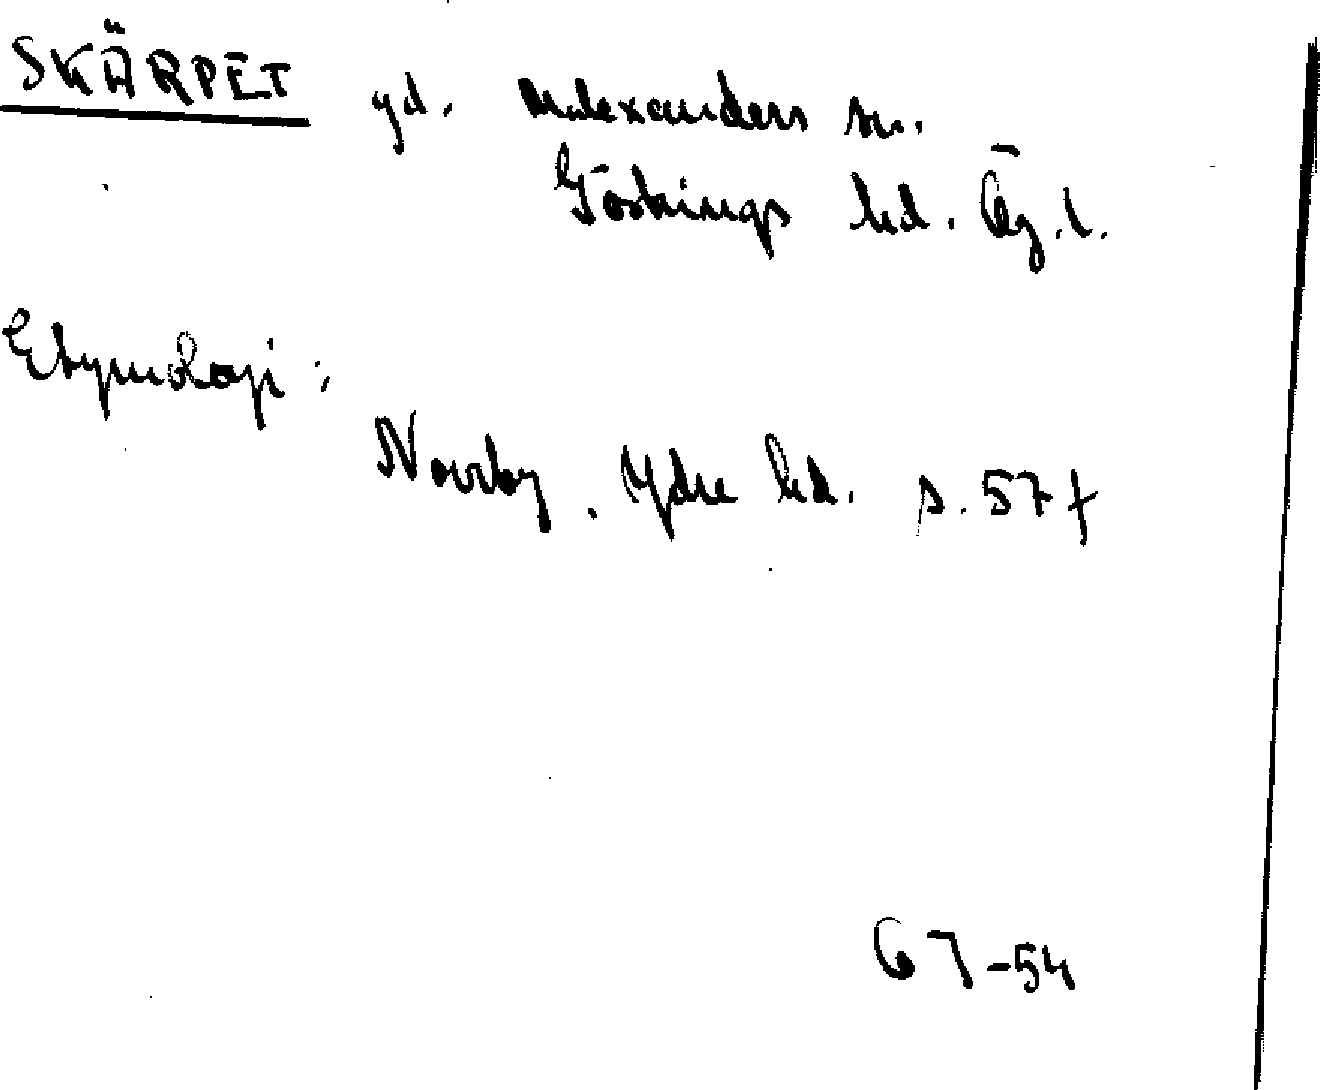 SKÄRPET gd. Malexanders sn.
Göstrings hd. Ög. l.
Etymologi:
Norrby, Ydre hd. s. 57 f
67-54